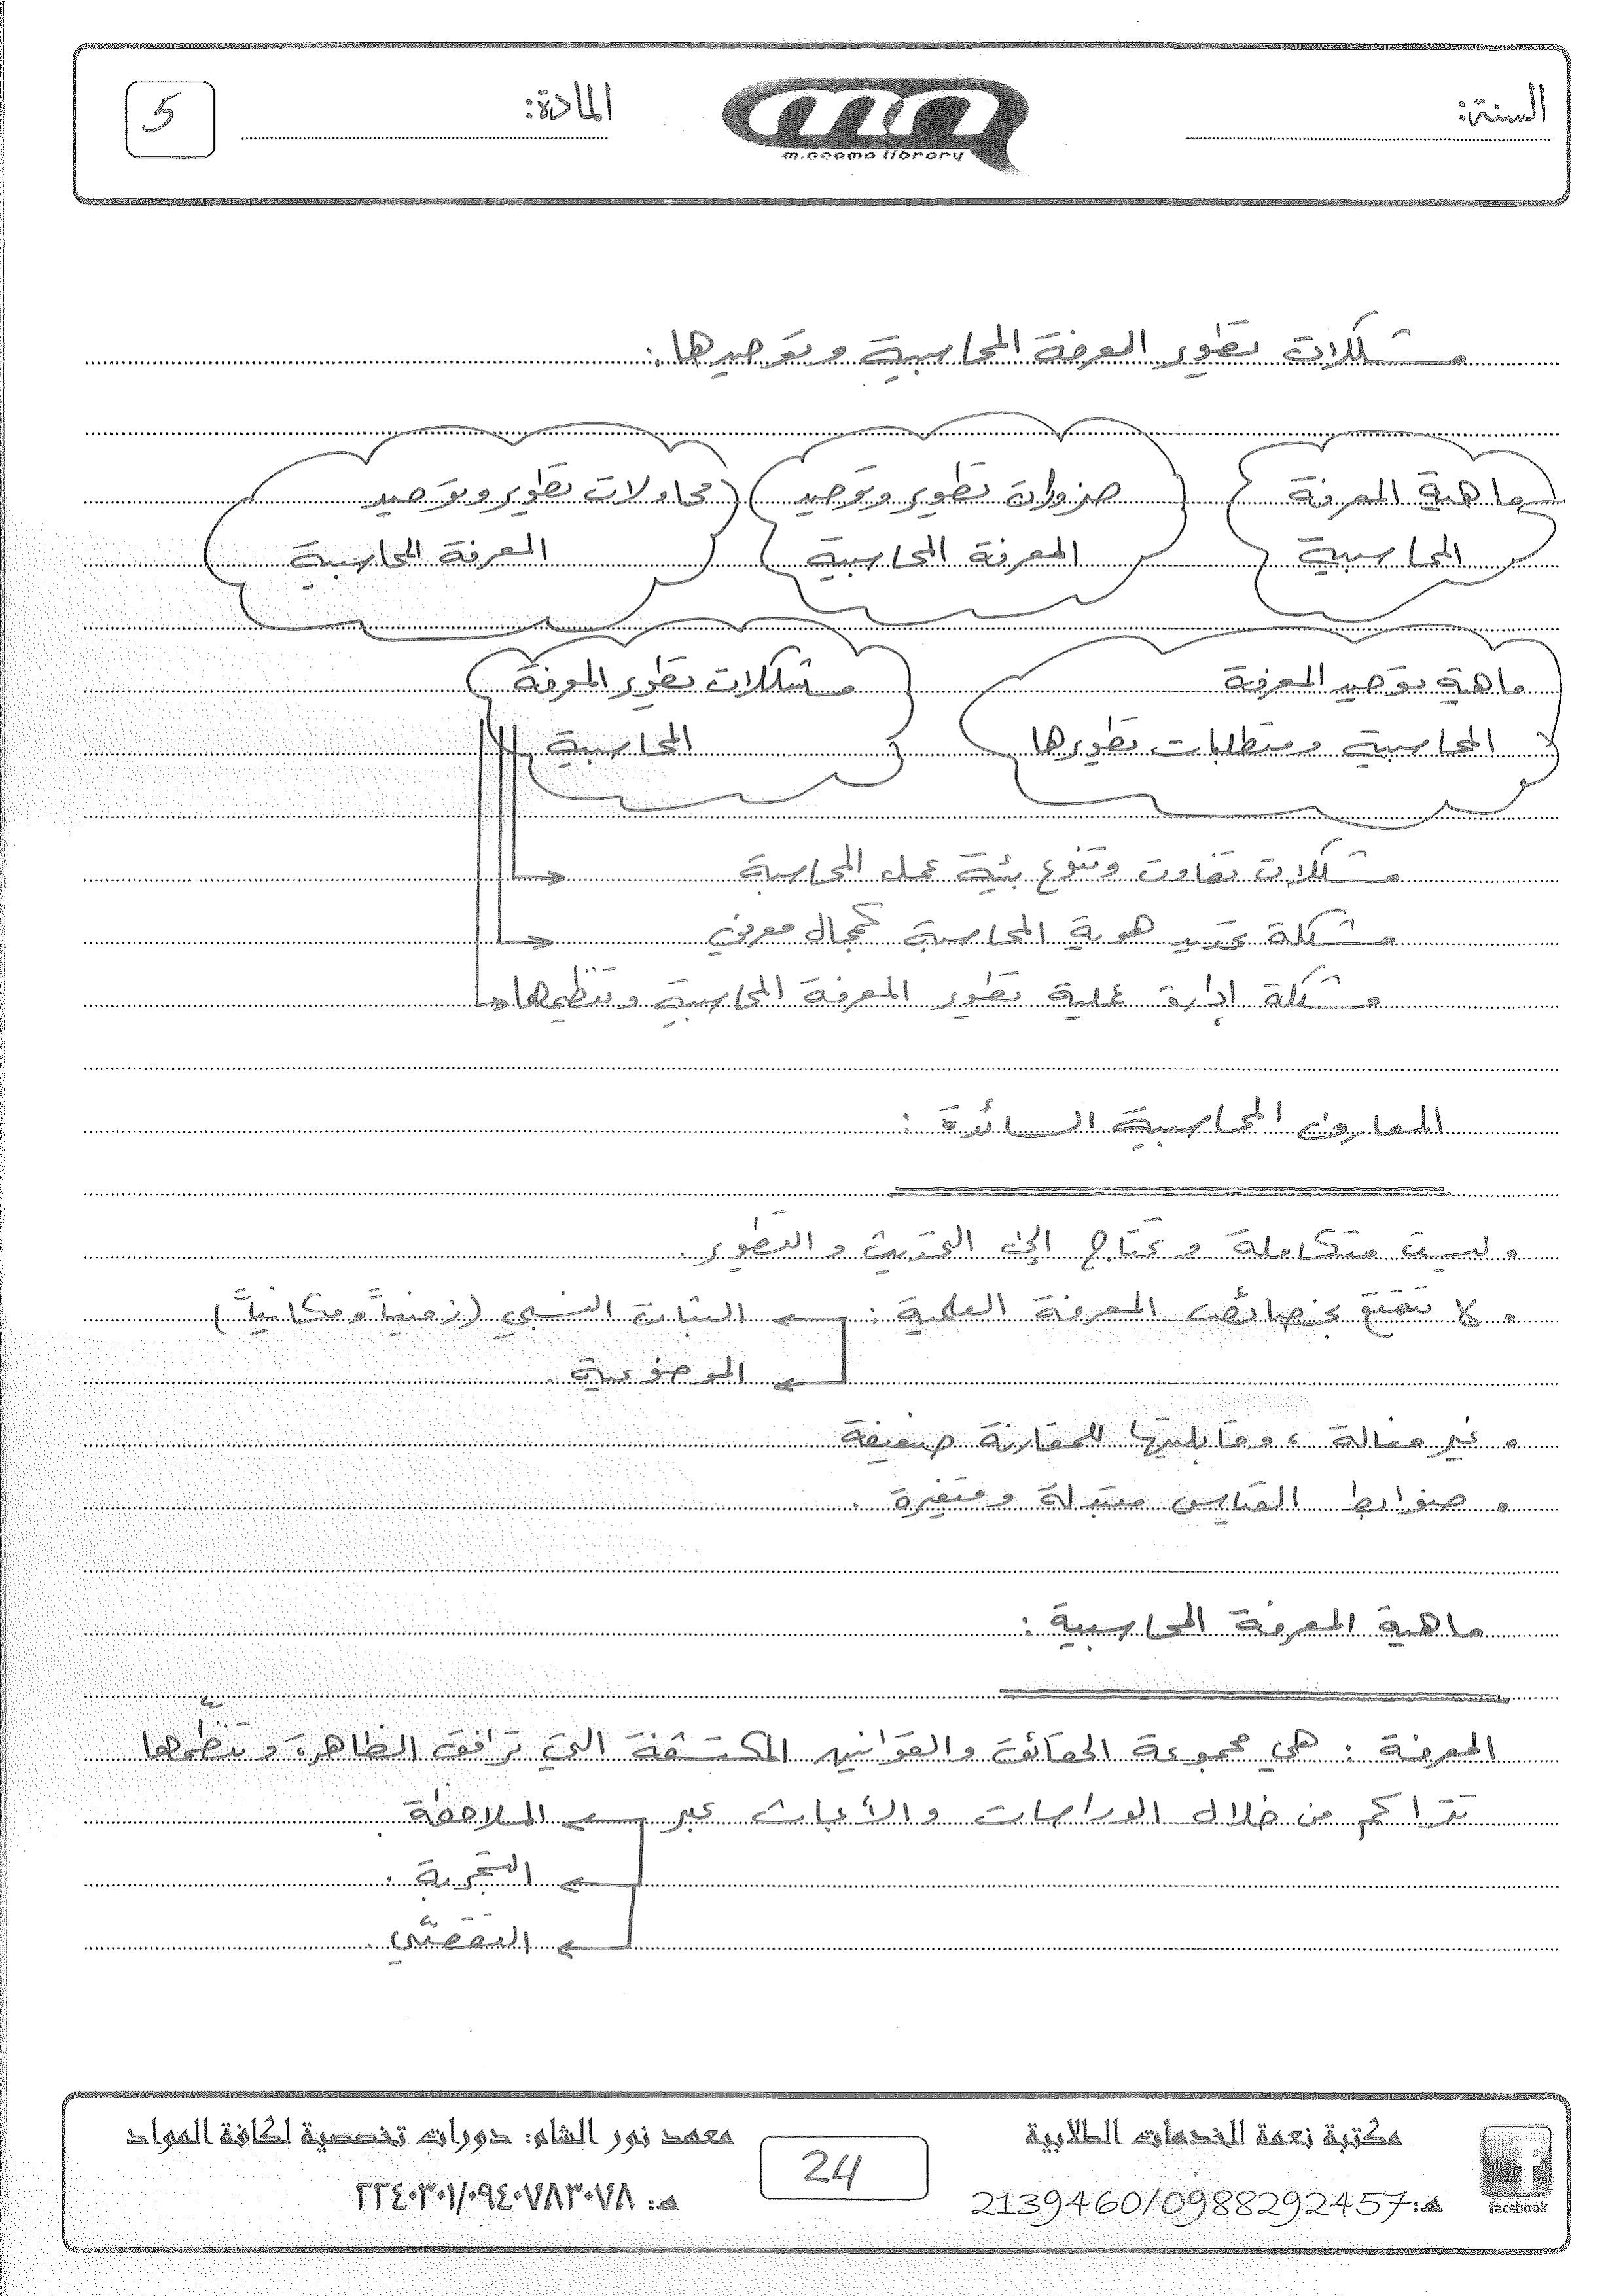 السنة:
m.neama library
المادة:
5
مشكلات تطوير المعرفة المحاسبية وتوحيدها:
ماهية المعرفة
المحاسبية
ضرورات تطوير وتوحيد
المعرفة المحاسبية
محاولات تطوير وتوحيد
المعرفة المحاسبية
ماهية توحيد المعرفة
المحاسبية ومتطلبات تطويرها
مشكلات تطوير المعرفة
المحاسبية
مشكلات تفاوت وتنوع بيئة عمل المحاسبة
مشكلة تحديد هوية المحاسبة كمجال معرفي
مشكلة إدارة عملية تطوير المعرفة المحاسبية وتنظيمها
المعارف المحاسبية السائدة:
• ليست متكاملة وتحتاج إلى التحديث والتطوير.
• لا تتمتع بخصائص المعرفة العلمية: ← الثبات النسبي (زمنياً ومكانياً)
← الموضوعية.
• غير فعالة، وقابليتها للمقارنة ضعيفة
• ضوابط القياس متبدلة ومتغيرة.
ماهية المعرفة المحاسبية:
المعرفة: هي مجموعة الحقائق والقوانين المكتشفة التي ترافق الظاهرة وتنظّمها
تتراكم من خلال الدراسات والأبحاث عبر ← الملاحظة.
← التجربة.
← التقصّي.
مكتبة نعمة للخدمات الطلابية
هـ: 2139460/0988292457
facebook
24
معهد نور الشام: دورات تخصصية لكافة المواد
هـ: ٢٢٤٠٣٠١/٠٩٤٠٧٨٣٠٧٨